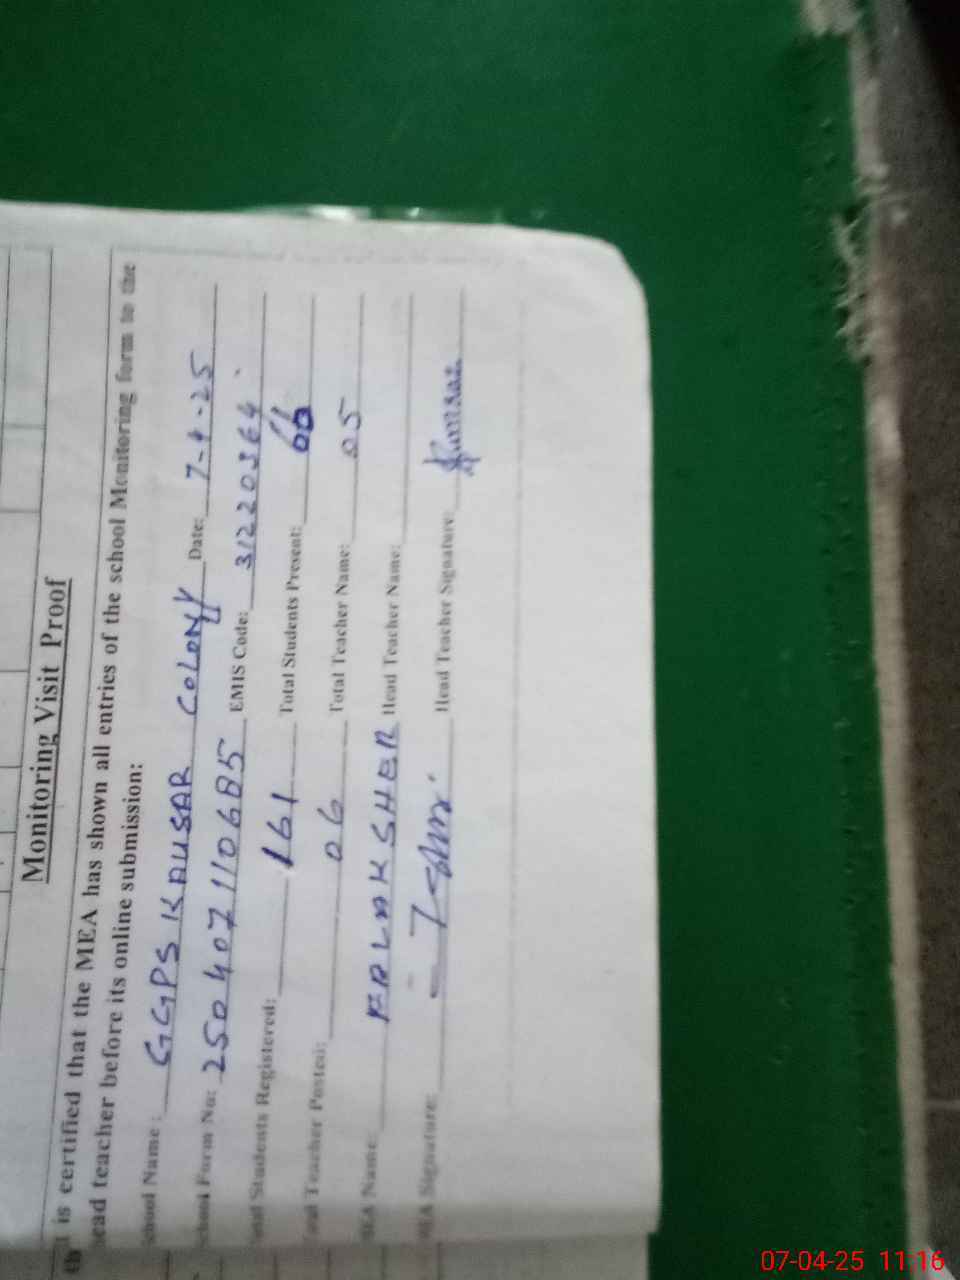 Monitoring Visit Proof
is certified that the MEA has shown all entries of the school Monitoring form to the
head teacher before its online submission:
School Name : GGPS KAUSAR COLONY Date: 7-4-25
School Form No: 250407110685 EMIS Code: 31220364
Total Students Registered: 161 Total Students Present:
Total Teacher Posted: 06 Total Teacher Name: 05
MEA Name: FALAK SHER Head Teacher Name:
MEA Signature: Head Teacher Signature:
07-04-25 11:16